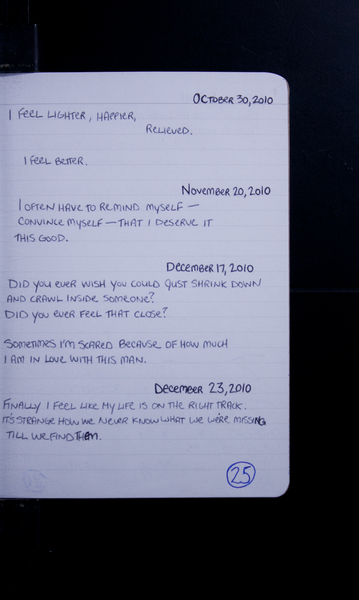 OCTOBER 30, 2010
I FEEL LIGHTER, HAPPIER,
RELIEVED.
I FEEL BETTER.
NOVEMBER 20, 2010
I OFTEN HAVE TO REMIND MYSELF —
CONVINCE MYSELF — THAT I DESERVE IT
THIS GOOD.
DECEMBER 17, 2010
DID YOU EVER WISH YOU COULD JUST SHRINK DOWN
AND CRAWL INSIDE SOMEONE?
DID YOU EVER FEEL THAT CLOSE?
SOMETIMES I'M SCARED BECAUSE OF HOW MUCH
I AM IN LOVE WITH THIS MAN.
DECEMBER 23, 2010
FINALLY I FEEL LIKE MY LIFE IS ON THE RIGHT TRACK.
IT'S STRANGE HOW WE NEVER KNOW WHAT WE WERE MISSING
TILL WE FIND THEM.
25